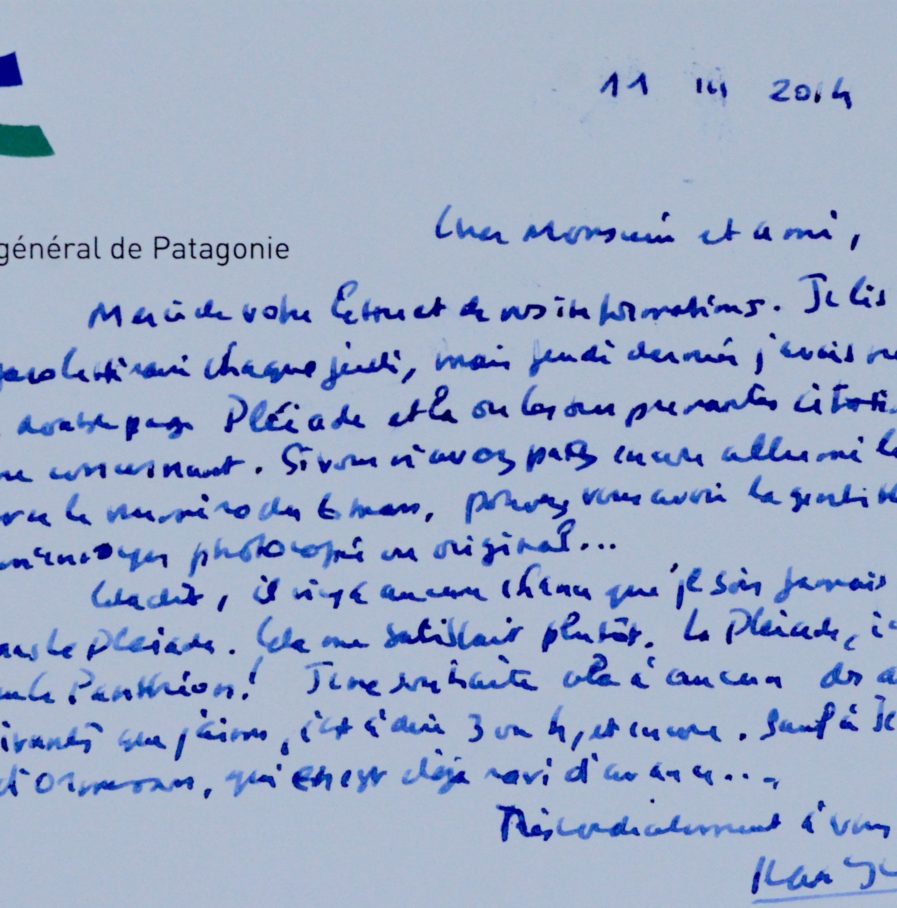 11 III 2014
général de Patagonie
Cher Monsieur et ami,
Merci de votre lettre et de vos informations. Je lis
chaque jeudi, mais jeudi dernier j'avais
double page Pléiade et la ou les surprenantes
me concernant. Si vous n'avez pas encore allumé le
le numéro du 6 mars, pouvez vous avoir la
photocopie ou original...
Cela dit, il n'y a aucune chance que je sois jamais
Pléiade. Cela me satisfait plutôt. La Pléiade,
le Panthéon! Je ne souhaite cela à aucun des
que j'aime, c'est à dire 3 ou 4, et encore. Sauf à
d'Ormesson, qui en est déjà ravi d'avance...
Très cordialement à vous